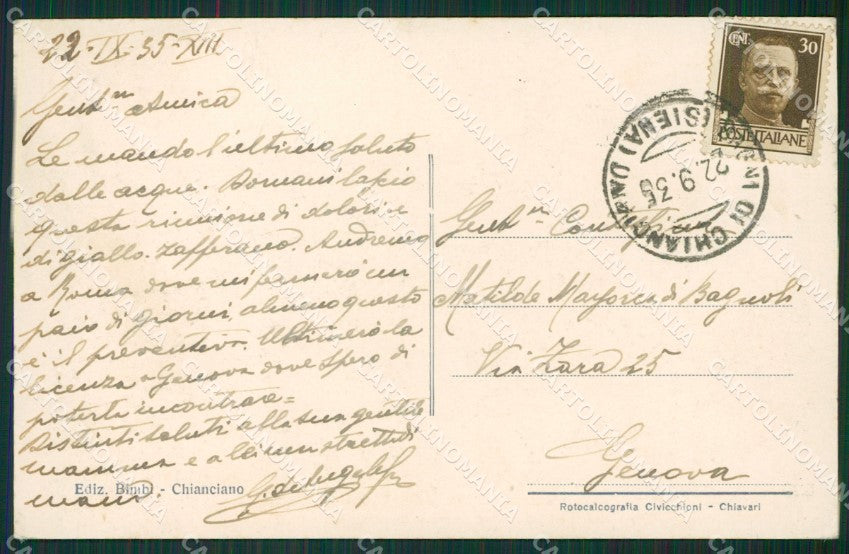 22-IX-35-XIII
Gent.ma Amica
Le mando l'ultimo saluto
dalle acque. Domani lascio
questa riunione di dolori e
di giallo. zafferano. Andremo
a Roma dove mi fermerò un
paio di giorni, almeno questo
è il preventivo. Ultimerò la
licenza a Genova dove spero di
poterla incontrare=
Distinti saluti alla sua gentile
mamma e a lei una stretta di
mano
Ediz. Bimbi - Chianciano
CENT. 30
POSTE ITALIANE
BAGNI DI CHIANCIANO (SIENA)
22.9.35
Gent.
Matilde Mayorca di Bagnoli
Via Zara 25
Genova
Rotocalcografia Civicchioni - Chiavari
CARTOLINOMANIA